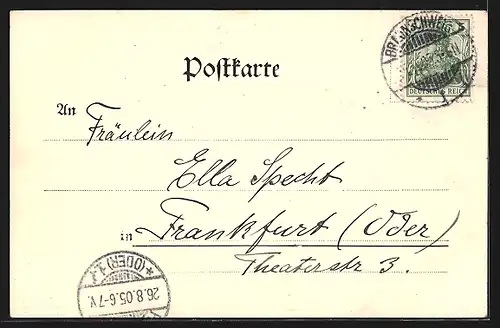 BRAUNSCHWEIG
DEUTSCHES REICH
Postkarte
An
Fräulein
Ella Specht
in Frankfurt (Oder)
Theaterstr 3.
(ODER)
26.8.05.6-7V.